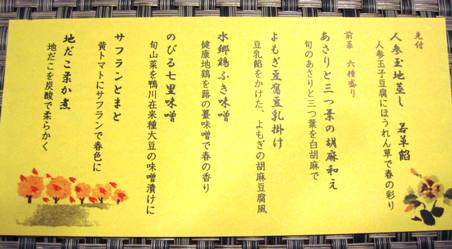 先付
人参玉地蒸し　若草餡
人参玉子豆腐にほうれん草で春の彩り
前菜　六種盛り
あさりと三つ葉の胡麻和え
旬のあさりと三つ葉を白胡麻で
よもぎ豆腐豆乳掛け
豆乳餡をかけた、よもぎの胡麻豆腐風
水郷鶏ふき味噌
健康地鶏を蕗の薹味噌で春の香り
のびる七里味噌
旬山菜を鴨川在来種大豆の味噌漬けに
サフランとまと
黄トマトにサフランで春色に
地だこ柔か煮
地だこを炭酸で柔らかく